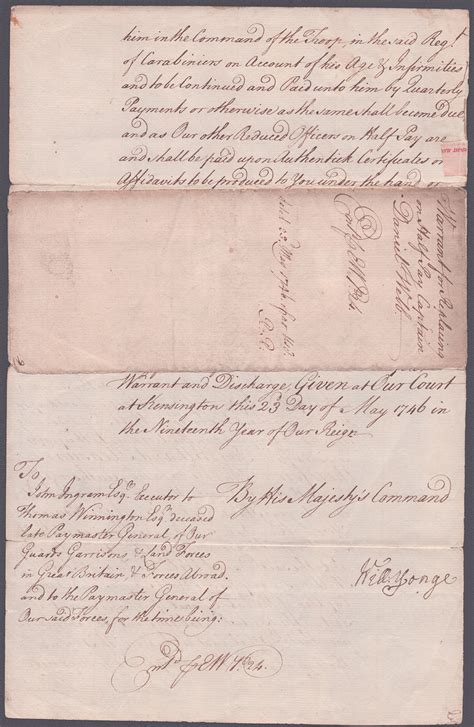 him in the Command of the Troop, in the said Regt.
of Carabiniers on Account of his Age & Infirmities
and to be Continued and Paid unto him by Quarterly
Payments or otherwise as the same shall become due
and as Our other Reduced Officers on Half Pay are
and shall be paid upon Authentick Certificates or
Affidavits to be produced to You under the hand or
Warrant for Replacing
on Half Pay Captain
Daniel Webb.
Warrant and Discharge, Given at Our Court
at Kensington this 23d Day of May 1746 in
the Nineteenth Year of Our Reign
To
John Ingram Esqr. Executor to
Thomas Winnington Esqr. deceased
late Paymaster General, of Our
Guards Garrisons & Land Forces
in Great Britain, & Forces Abroad.
and to the Paymaster General of
Our said Forces, for the time being:
By His Majesty's Command
Yonge